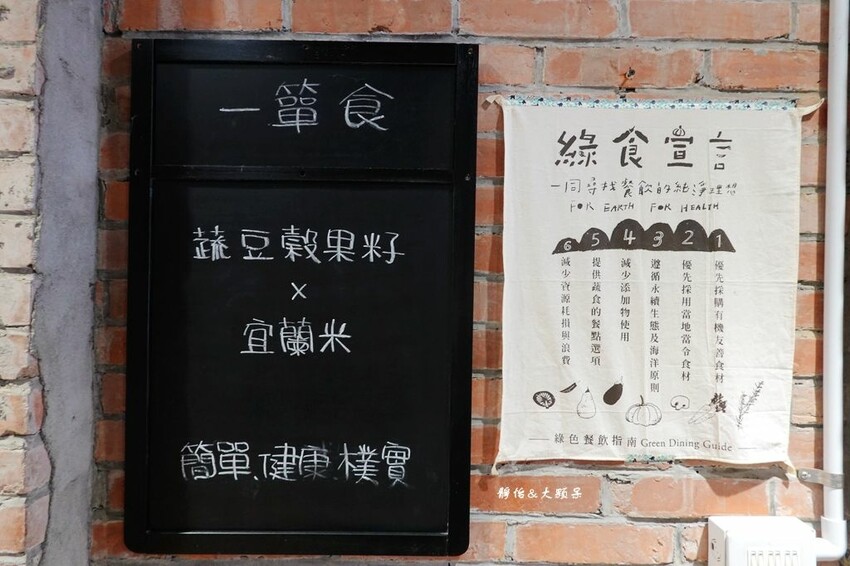 一簞食
蔬豆穀果籽
x
宜蘭米
簡單、健康、樸實
綠食宣言
一同尋找餐飲的純淨理想
FOR EARTH FOR HEALTH
1 優先採購有機友善食材
2 優先採用當地當令食材
3 遵循永續生態及海洋原則
4 減少添加物使用
5 提供蔬食的餐點選項
6 減少資源耗損與浪費
綠色餐飲指南 Green Dining Guide